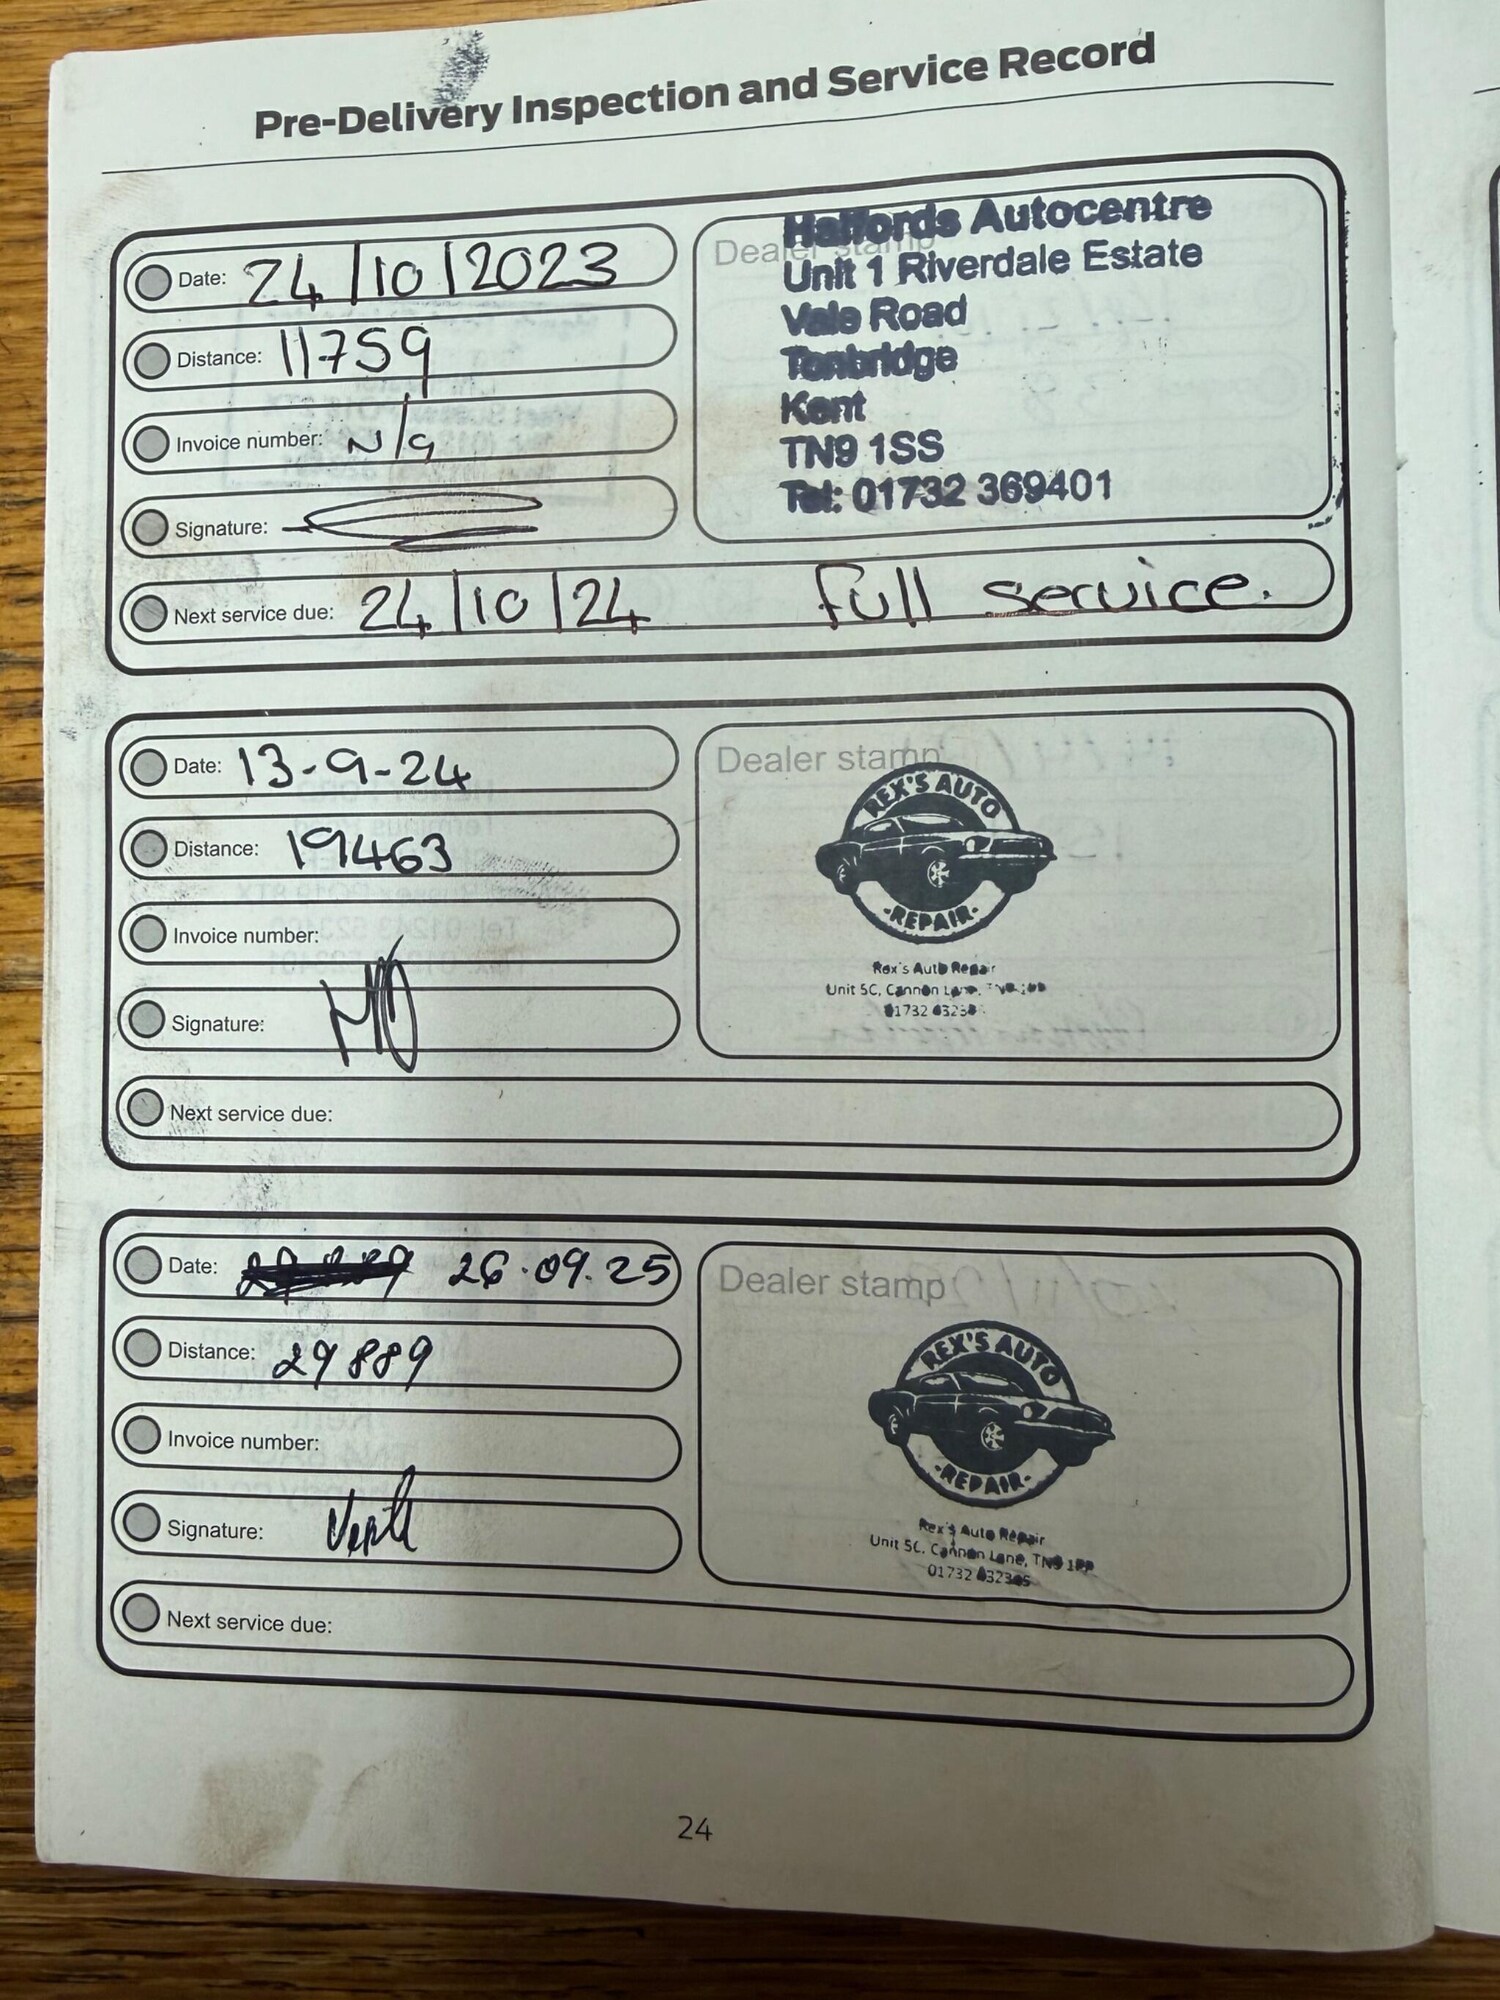 Pre-Delivery Inspection and Service Record
Date: 24/10/2023
Distance: 11759
Invoice number: N/a
Signature:
Next service due: 24/10/24 Full service.
Dealer stamp
Halfords Autocentre
Unit 1 Riverdale Estate
Vale Road
Tonbridge
Kent
TN9 1SS
Tel: 01732 369401
Date: 13-9-24
Distance: 19463
Invoice number:
Signature:
Next service due:
Dealer stamp
REX'S AUTO
-REPAIR-
Rex's Auto Repair
Unit 5C, Cannon Lane,
01732
Date: 26.09.25
Distance: 29889
Invoice number:
Signature:
Next service due:
Dealer stamp
REX'S AUTO
-REPAIR-
Rex's Auto Repair
Unit 5C, Cannon Lane, TN9 1PP
01732
24